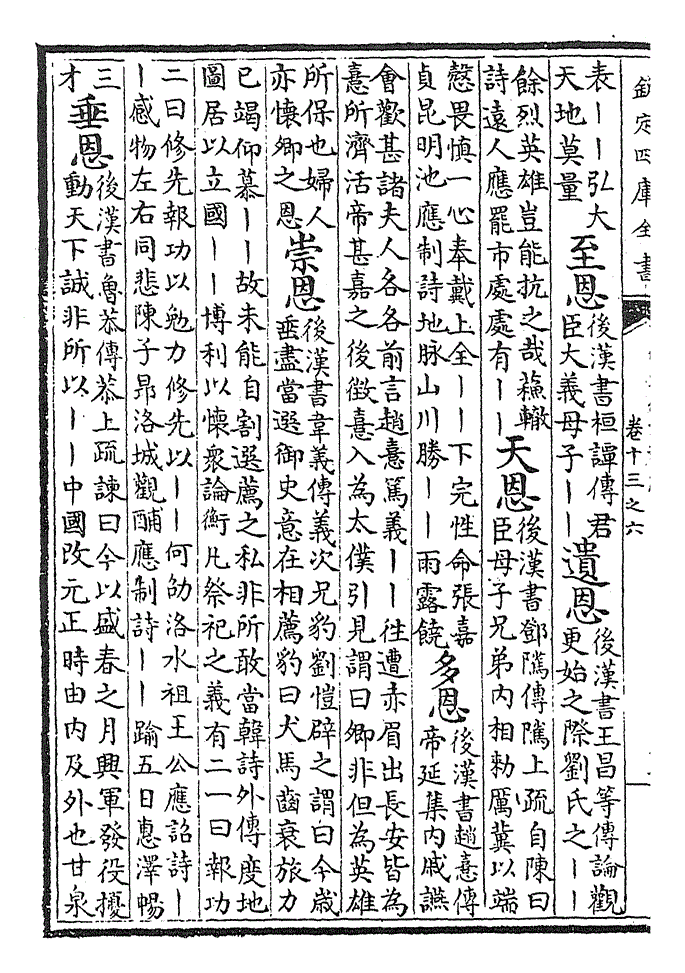 欽定四庫全書
卷十三之六
表——弘大
天地莫量
至恩
後漢書桓譚傳君
臣大義母子——
遺恩
後漢書王昌等傳論觀
更始之際劉氏之——
餘烈英雄豈能抗之哉蘓轍
詩遠人應罷市處處有——
天恩
後漢書鄧隲傳隲上疏自陳曰
臣母子兄弟内相勑厲冀以端
慤畏慎一心奉戴上全——下完性命張嘉
貞昆明池應制詩地脉山川勝——雨露饒
多恩
後漢書趙憙傳
帝延集内戚讌
會歡甚諸夫人各各前言趙憙篤義——往遭赤眉出長安皆為
憙所濟活帝甚嘉之後徴憙入為太僕引見謂曰卿非但為英雄
所保也婦人
亦懷卿之恩
崇恩
後漢書韋義傳義次兄豹劉愷辟之謂曰今歳
垂盡當選御史意在相薦豹曰犬馬齒衰旅力
已竭仰慕——故未能自割選薦之私非所敢當韓詩外傳度地
圖居以立國——博利以懷衆論衡凡祭祀之義有二一曰報功
二曰修先報功以勉力修先以——何劭洛水祖王公應詔詩—
—感物左右同悲陳子昻洛城觀酺應制詩——踰五日惠澤暢
三
才
垂恩
後漢書魯恭傳恭上疏諫曰今以盛春之月興軍發役擾
動天下誠非所以——中國改元正時由内及外也甘泉